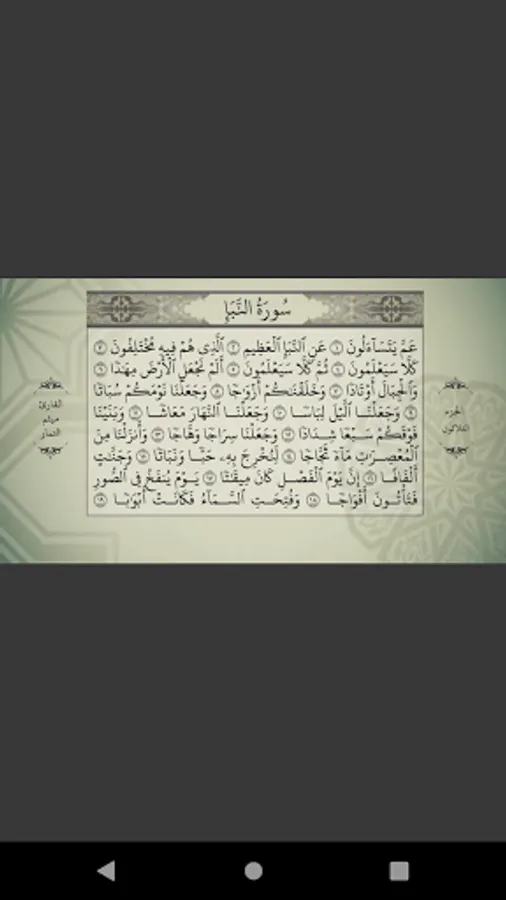 سُورَةُ النَّبَإِ
عَمَّ يَتَسَآءَلُونَ ١ عَنِ ٱلنَّبَإِ ٱلْعَظِيمِ ٢ ٱلَّذِى هُمْ فِيهِ مُخْتَلِفُونَ ٣
كَلَّا سَيَعْلَمُونَ ٤ ثُمَّ كَلَّا سَيَعْلَمُونَ ٥ أَلَمْ نَجْعَلِ ٱلْأَرْضَ مِهَٰدًا ٦
وَٱلْجِبَالَ أَوْتَادًا ٧ وَخَلَقْنَٰكُمْ أَزْوَٰجًا ٨ وَجَعَلْنَا نَوْمَكُمْ سُبَاتًا
٩ وَجَعَلْنَا ٱلَّيْلَ لِبَاسًا ١٠ وَجَعَلْنَا ٱلنَّهَارَ مَعَاشًا ١١ وَبَنَيْنَا
فَوْقَكُمْ سَبْعًا شِدَادًا ١٢ وَجَعَلْنَا سِرَاجًا وَهَّاجًا ١٣ وَأَنزَلْنَا مِنَ
ٱلْمُعْصِرَٰتِ مَآءً ثَجَّاجًا ١٤ لِّنُخْرِجَ بِهِۦ حَبًّا وَنَبَاتًا ١٥ وَجَنَّٰتٍ
أَلْفَافًا ١٦ إِنَّ يَوْمَ ٱلْفَصْلِ كَانَ مِيقَٰتًا ١٧ يَوْمَ يُنفَخُ فِى ٱلصُّورِ
فَتَأْتُونَ أَفْوَاجًا ١٨ وَفُتِحَتِ ٱلسَّمَآءُ فَكَانَتْ أَبْوَٰبًا ١٩
الجزء
الثلاثون
القارئ
ميثم
التمار